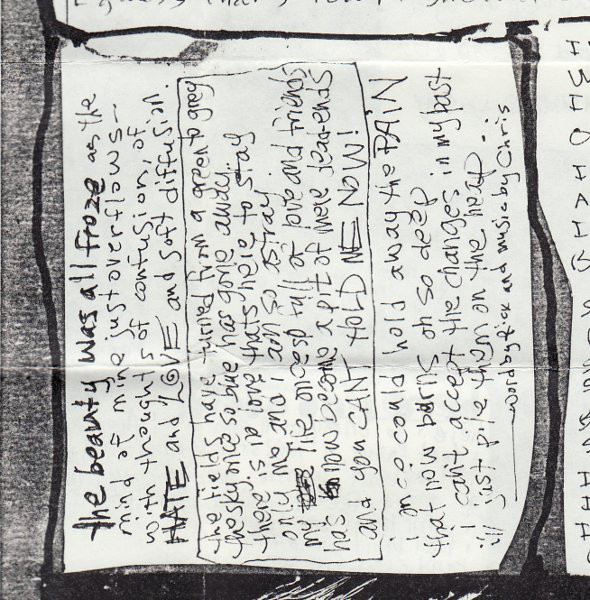 the beauty was all froze as the
mind of mine just overflows—
with thoughts of confusion, of
HATE and LOVE and soft diffusion.
the fields have turned from a green to grey
the sky once so blue has gone away
there is no love thats here to stay
only me and i am so astray
my life once so full of love and friends
has now become a pit of mere dead-ends
and you CANT HOLD ME NOW!
i once could hold away the PAIN
that now burns oh so deep
i can't accept the changes in my past
i'll just pile them on the heap...
word by Rick and music by Chris